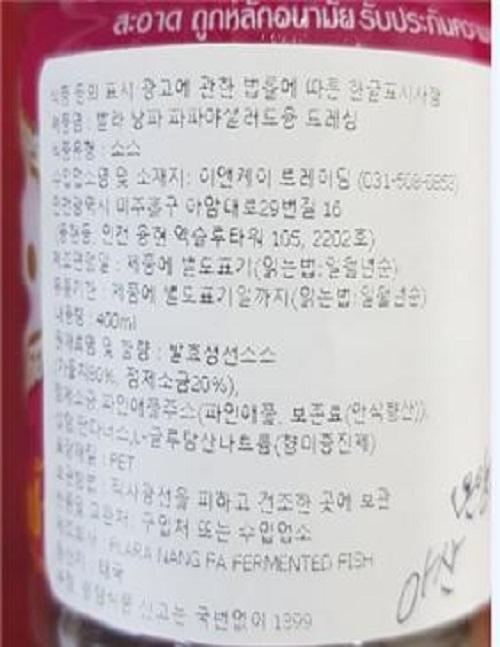 สะอาด ถูกหลักอนามัย รับประกันความ
식품 등의 표시 광고에 관한 법률에 따른 한글표시사항
제품명 : 쁠라 낭파 파파야샐러드용 드레싱
식품유형 : 소스
수입업소명 및 소재지: 이앤케이 트레이딩 (031-508-0853)
인천광역시 미추홀구 아암대로29번길 16
(용현동, 인천 용현 엑슬루타워 105, 2202호)
제조연월일 : 제품에 별도표기(읽는법:일월년순)
유통기간 : 제품에 별도표기일까지(읽는법:일월년순)
내용량 : 400ml
원재료명 및 함량 : 발효생선소스
정제소금20%),
정제소금,파인애플주스(파인애플, 보존료(안식향산)),
L-글루탐산나트륨(향미증진제)
용기재질 : PET
보관방법 : 직사광선을 피하고 건조한 곳에 보관
반품및 교환처: 구입처 또는 수입업소
제조회사 : PLARA NANG FA FERMENTED FISH
원산지 : 태국
부정, 불량식품 신고는 국번없이 1399
아산